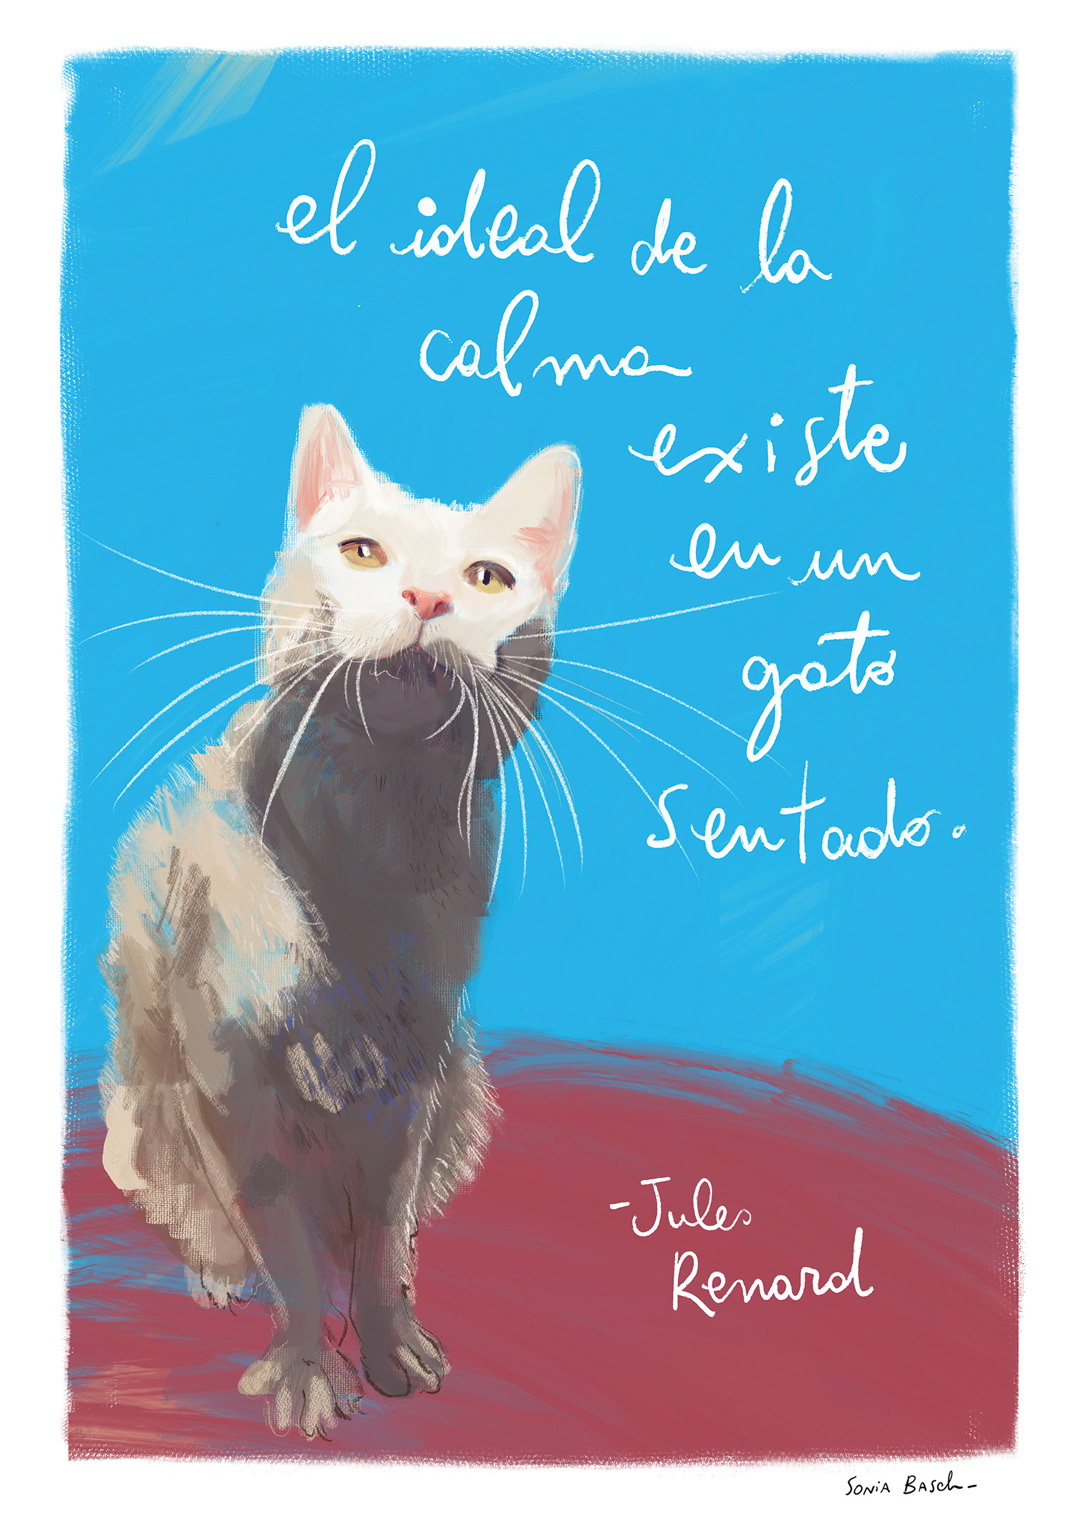 el ideal de la
calma
existe
en un
gato
sentado.
-Jules
Renard
SONIA BASCH-